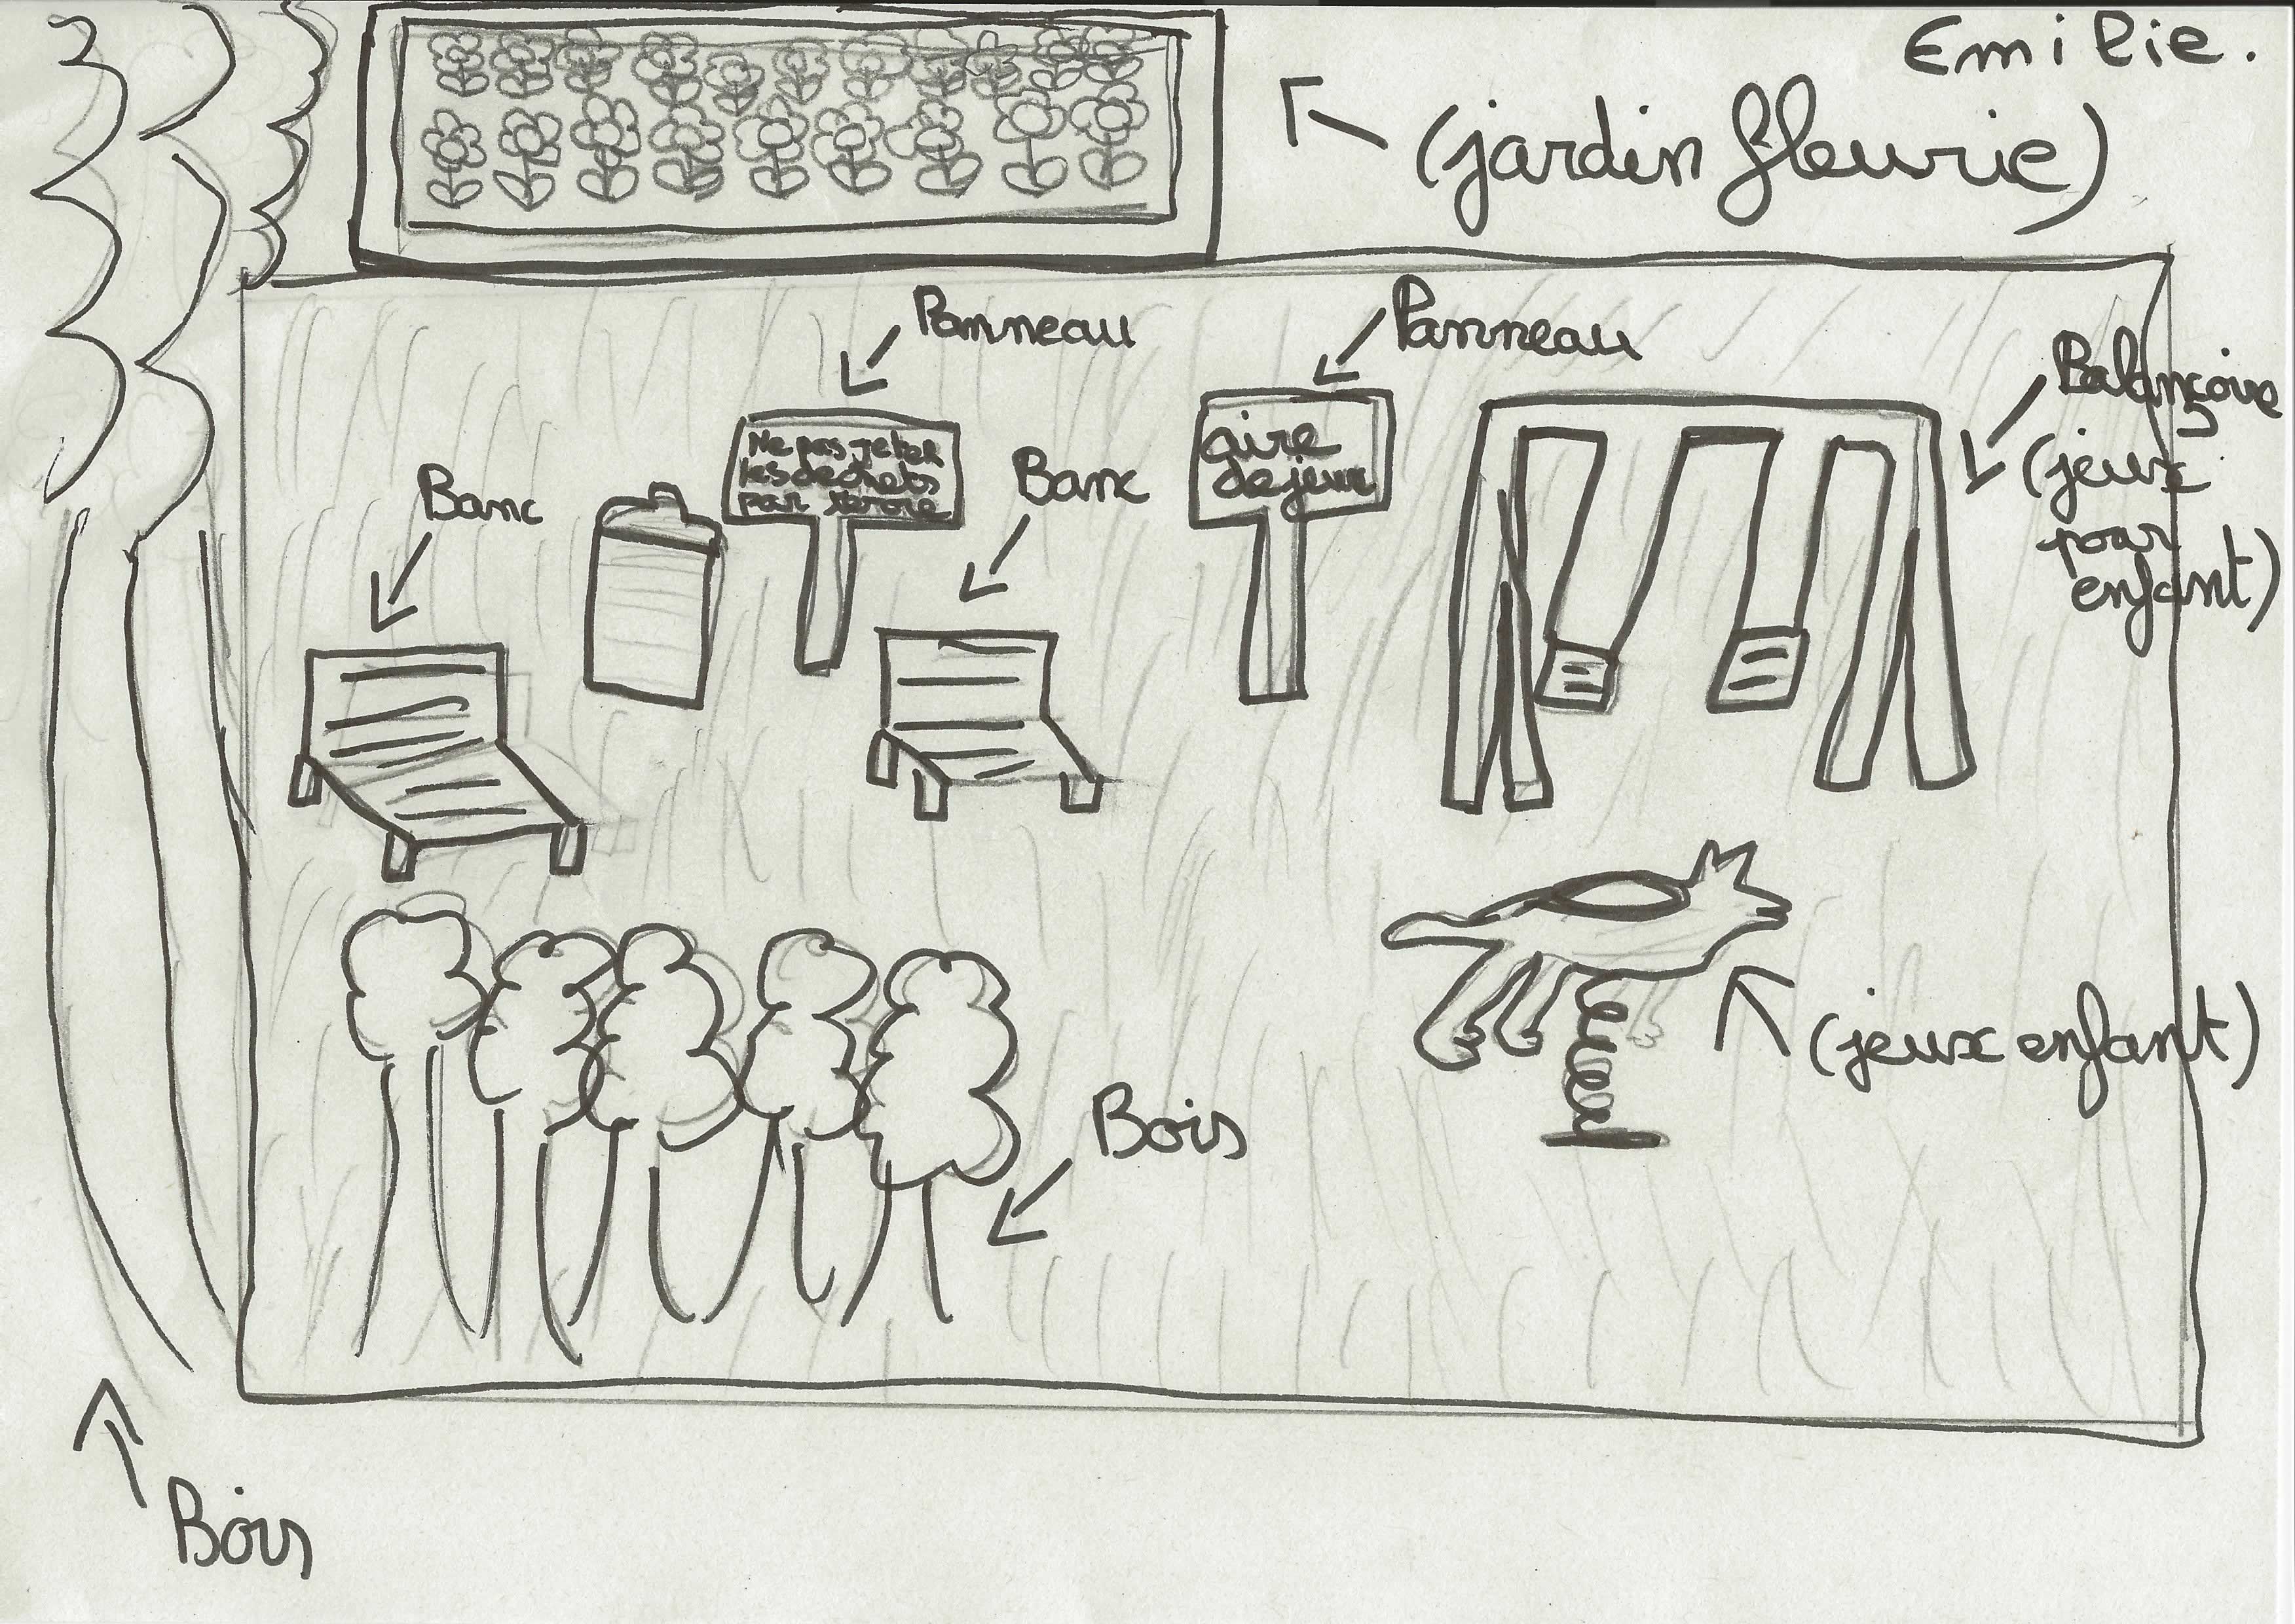 Emilie.
(jardin fleurie)
Panneau
Panneau
Balançoire
(jeux
pour
enfant)
Ne pas jeter
les dechets
par terre
aire
de jeux
Banc
Banc
(jeux enfant)
Bois
Bois